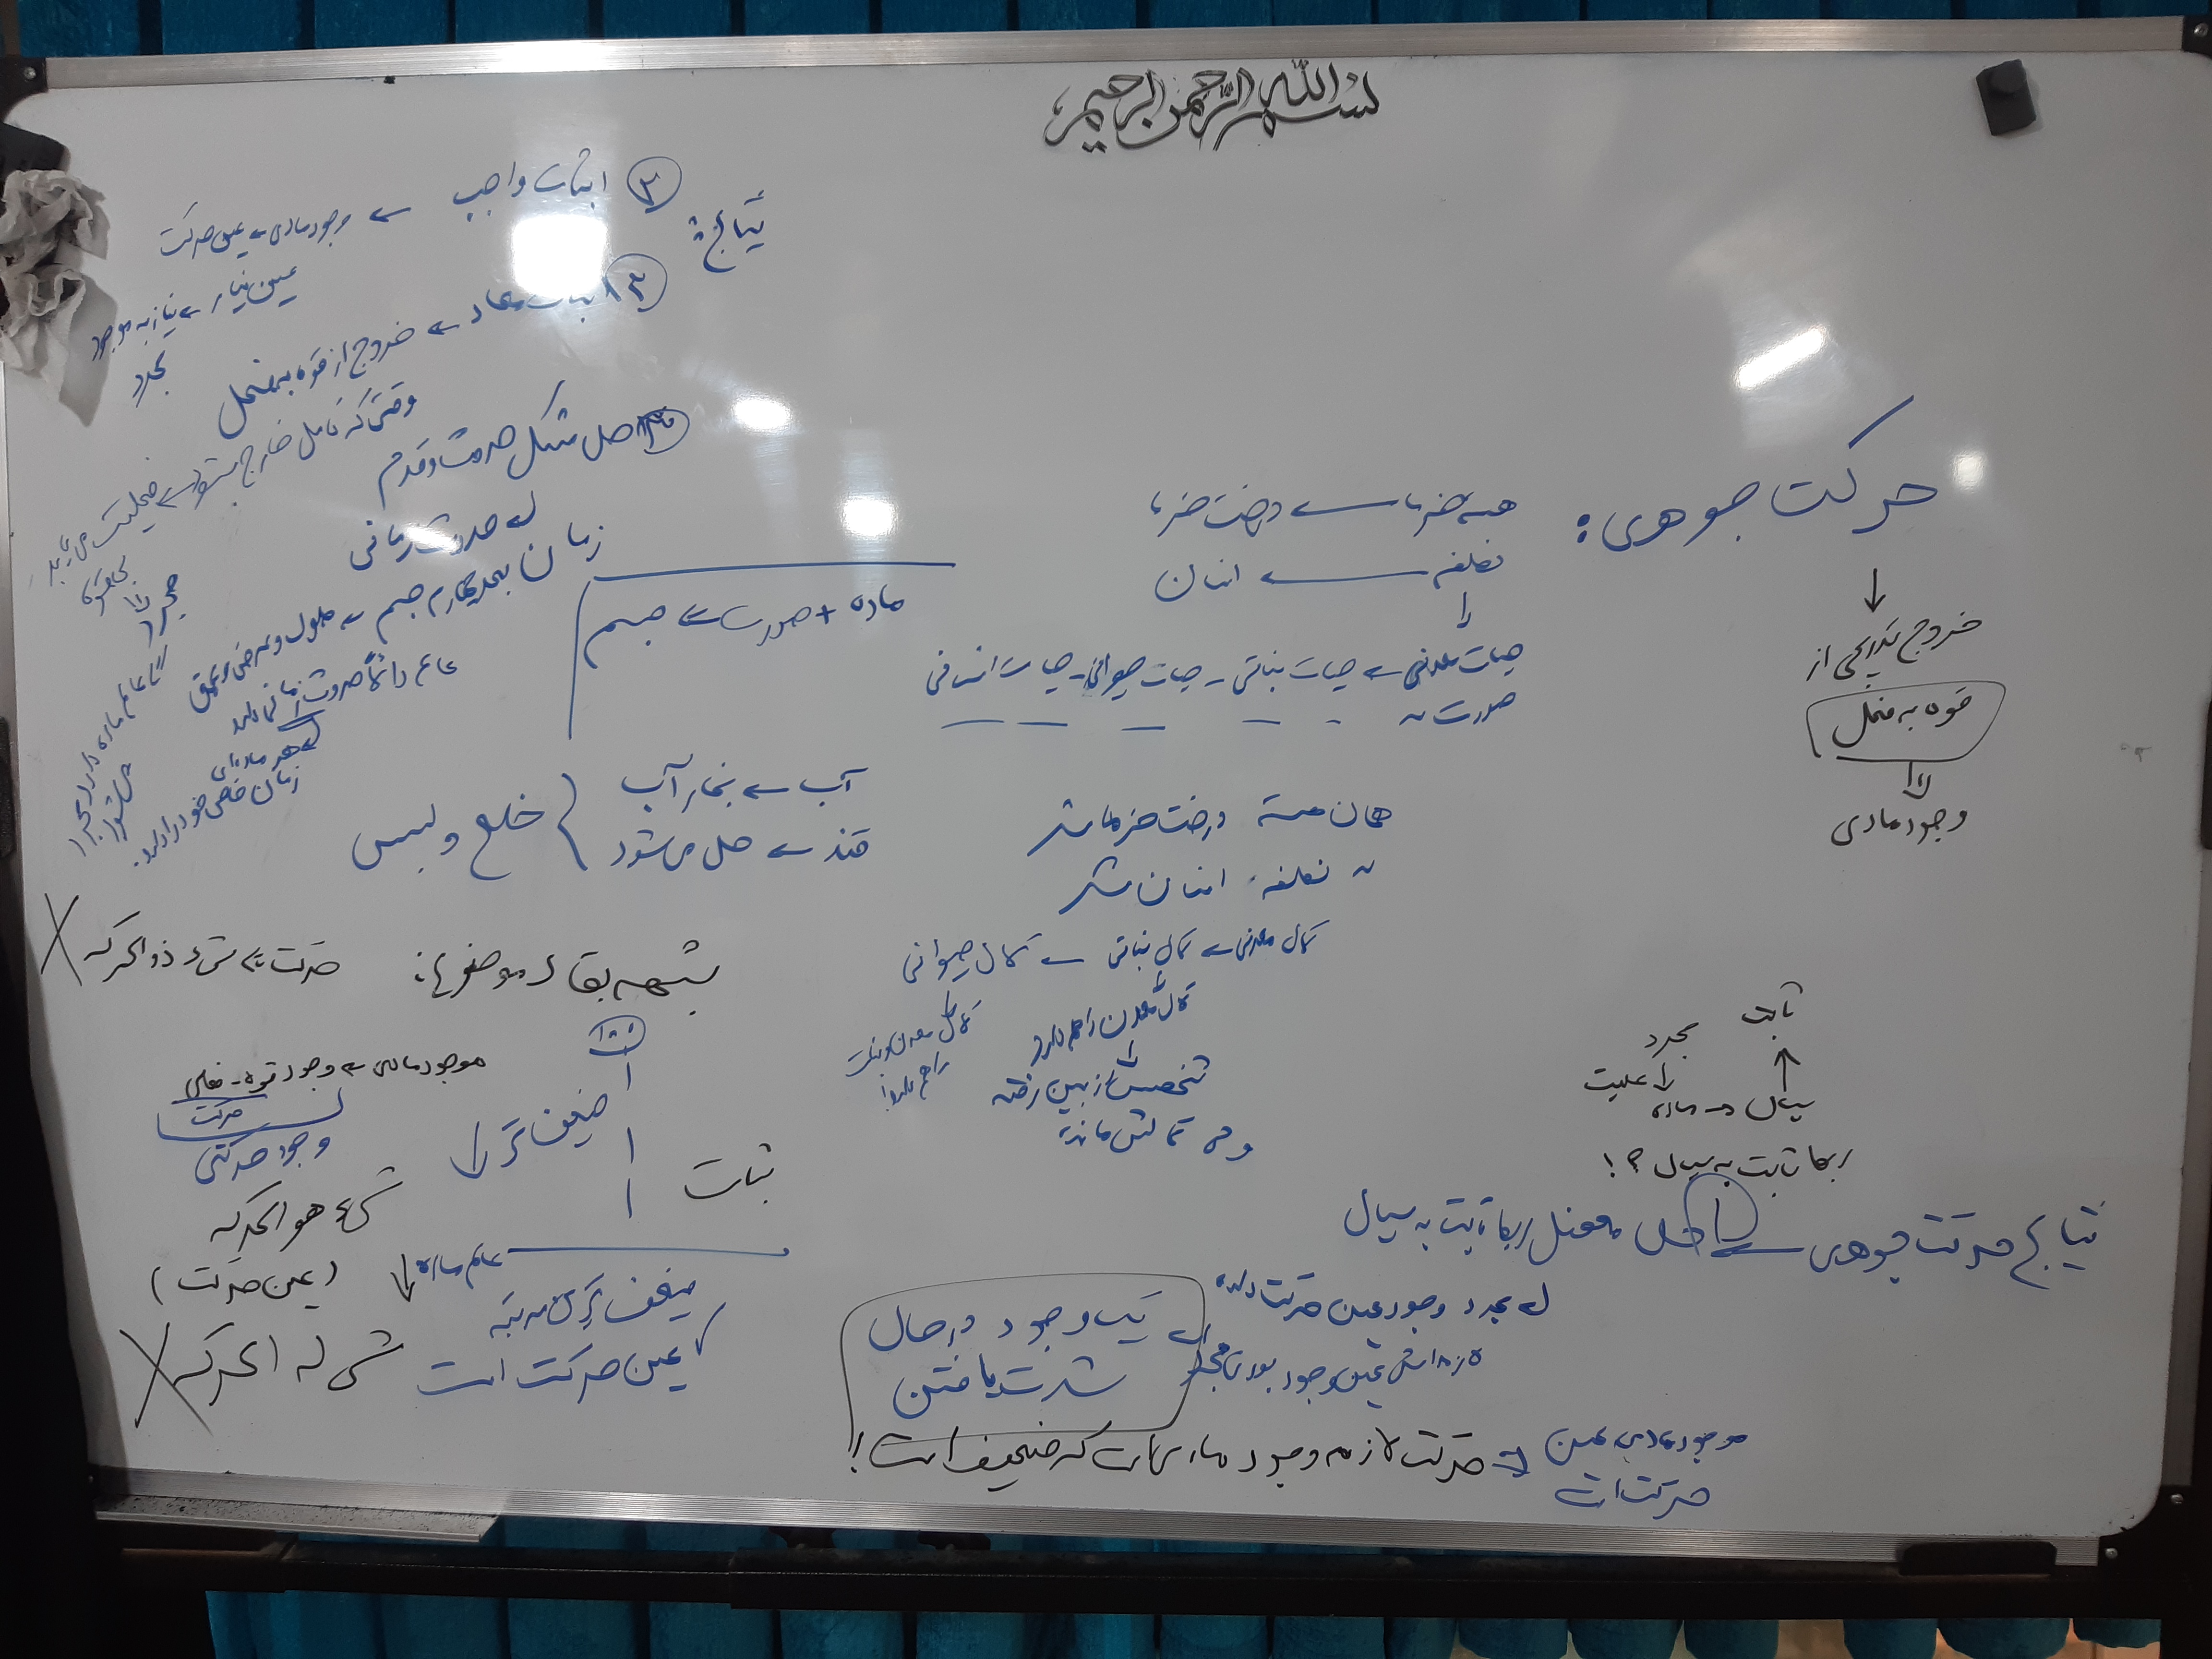 بسم الله الرحمن الرحیم
حرکت جوهری:
↓
خروج تدریجی از
قوه به فعل
وجود مادی
هسته خرما ← درخت خرما
نطفه ← انسان
حیات معدنی ← حیات نباتی - حیات حیوانی - حیات انسانی
صورت ~
ماده + صورت ← جسم
همان هسته درخت خرما شد
〃 نطفه انسان شد
کمال معدنی ← کمال نباتی ← کمال حیوانی
کمال معدن را هم دارد
کمال معدن و نبات
را هم دارد
تشخصش از بین رفته
ولی کمالش مانده
آب ← بخار آب
قند ← حل می‌شود
خلع و لبس
ثابت
مجرد
علیت
سیال ← ماده
ربط ثابت به سیال ؟!
نتایج حرکت جوهری ← ۱ حل معضل ربط ثابت به سیال
مجرد وجود عین حرکت داده
یک وجود در حال
شدت یافتن
موجود مادی عین
حرکت است
حرکت لازمه وجود مادی است که ضعیف است!
نتایج:
۲ اثبات واجب ← وجود مادی ← عین حرکت
عین نیاز ← نیاز به موجود
مجرد
۳ اثبات معاد ← خروج از قوه به فعل
وقتی که کامل خارج شود ← فعلیت می‌یابد
مجرد
عالم ماده دارد مجرد
می‌شود
۴ حل مشکل حدوث و قدم
حدوث زمانی
زمان بعد چهارم جسم ← طول و عرض و عمق
عالم دائماً حدوث زمانی دارد
هر ماده‌ای
زمان خاص خود را دارد.
شبهه بقاء موضوع: حرکت ← شیء ذو الحرکه
موجود مادی ← وجود قوه - فعلی
حرکت
وجود حرکتی
شیء هو الحرکه
(عین حرکت)
شی له الحرکه
خدا
ضعیف‌تر ↓
ثبات
عالم ماده
ضعیف‌ترین مرتبه
عین حرکت است